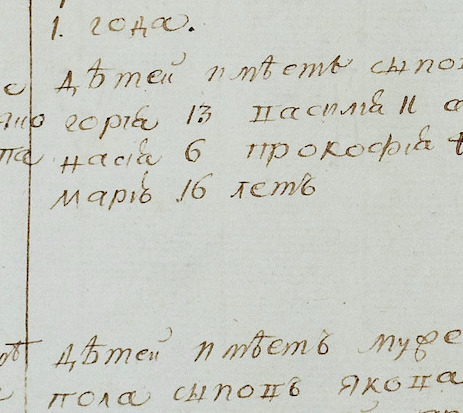 1. года.
дѣтей имѣетъ сыно
горіа 13 Васима 11 а
насіа 6 прокофіа
маріѣ 16 летъ
дѣтей имѣетъ муже
пола сыновъ якова